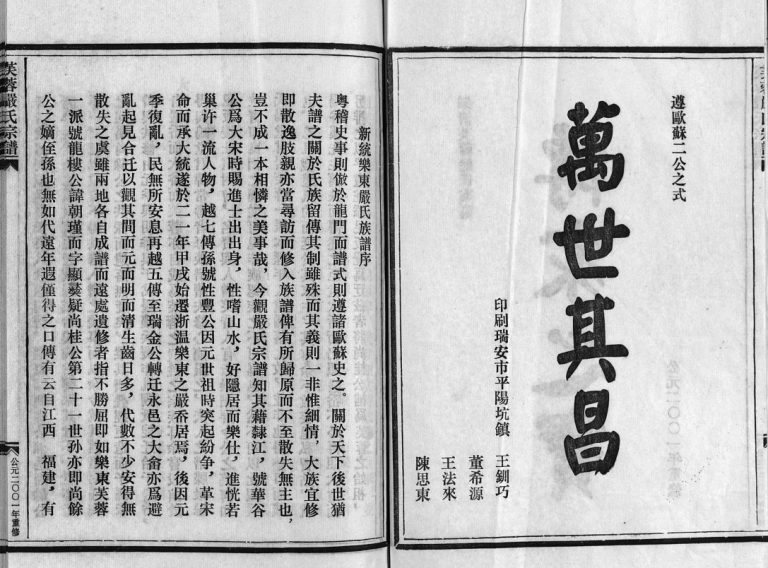 遵歐蘇二公之式
萬世其昌
印刷瑞安市平陽坑鎮
王釧巧
董希源
王法來
陳思東
新統樂東嚴氏族譜序
粵稽史事則倣於龍門而譜式則遵諸歐蘇史之。關於天下後世猶
夫譜之關於氏族留傳其制雖殊而其義則一非惟細情，大族宜修
即散逸肢親亦當尋訪而修入族譜俾有所歸原而不至散失無主也，
豈不成一本相憐之美事哉，今觀嚴氏宗譜知其藉隸江，號華谷
公爲大宋時賜進士出出身，性嗜山水，好隱居而樂仕，進恍若
巢许一流人物，越七傳孫號性豐公因元世祖時突起紛争，革宋
命而承大統遂於二一年甲戌始遷浙温樂東之嚴岙居焉，後因元
季復亂，民無所安息再越五傳至瑞金公轉迁永邑之大龠亦爲避
亂起見合迁以觀其間而元而明而清生齒日多，代數不少安得無
散失之虞雖兩地各自成譜而遠處遺修者指不勝屈即如樂東芙蓉
一派號龍樓公諱朝瑾而字顯藝疑尚桂公第二十一世孫亦即尚餘
公之嫡侄孫也無如代遠年遐僅得之口傳有云自江西　福建，有
芙蓉嚴氏宗譜
公元二〇〇一年重修